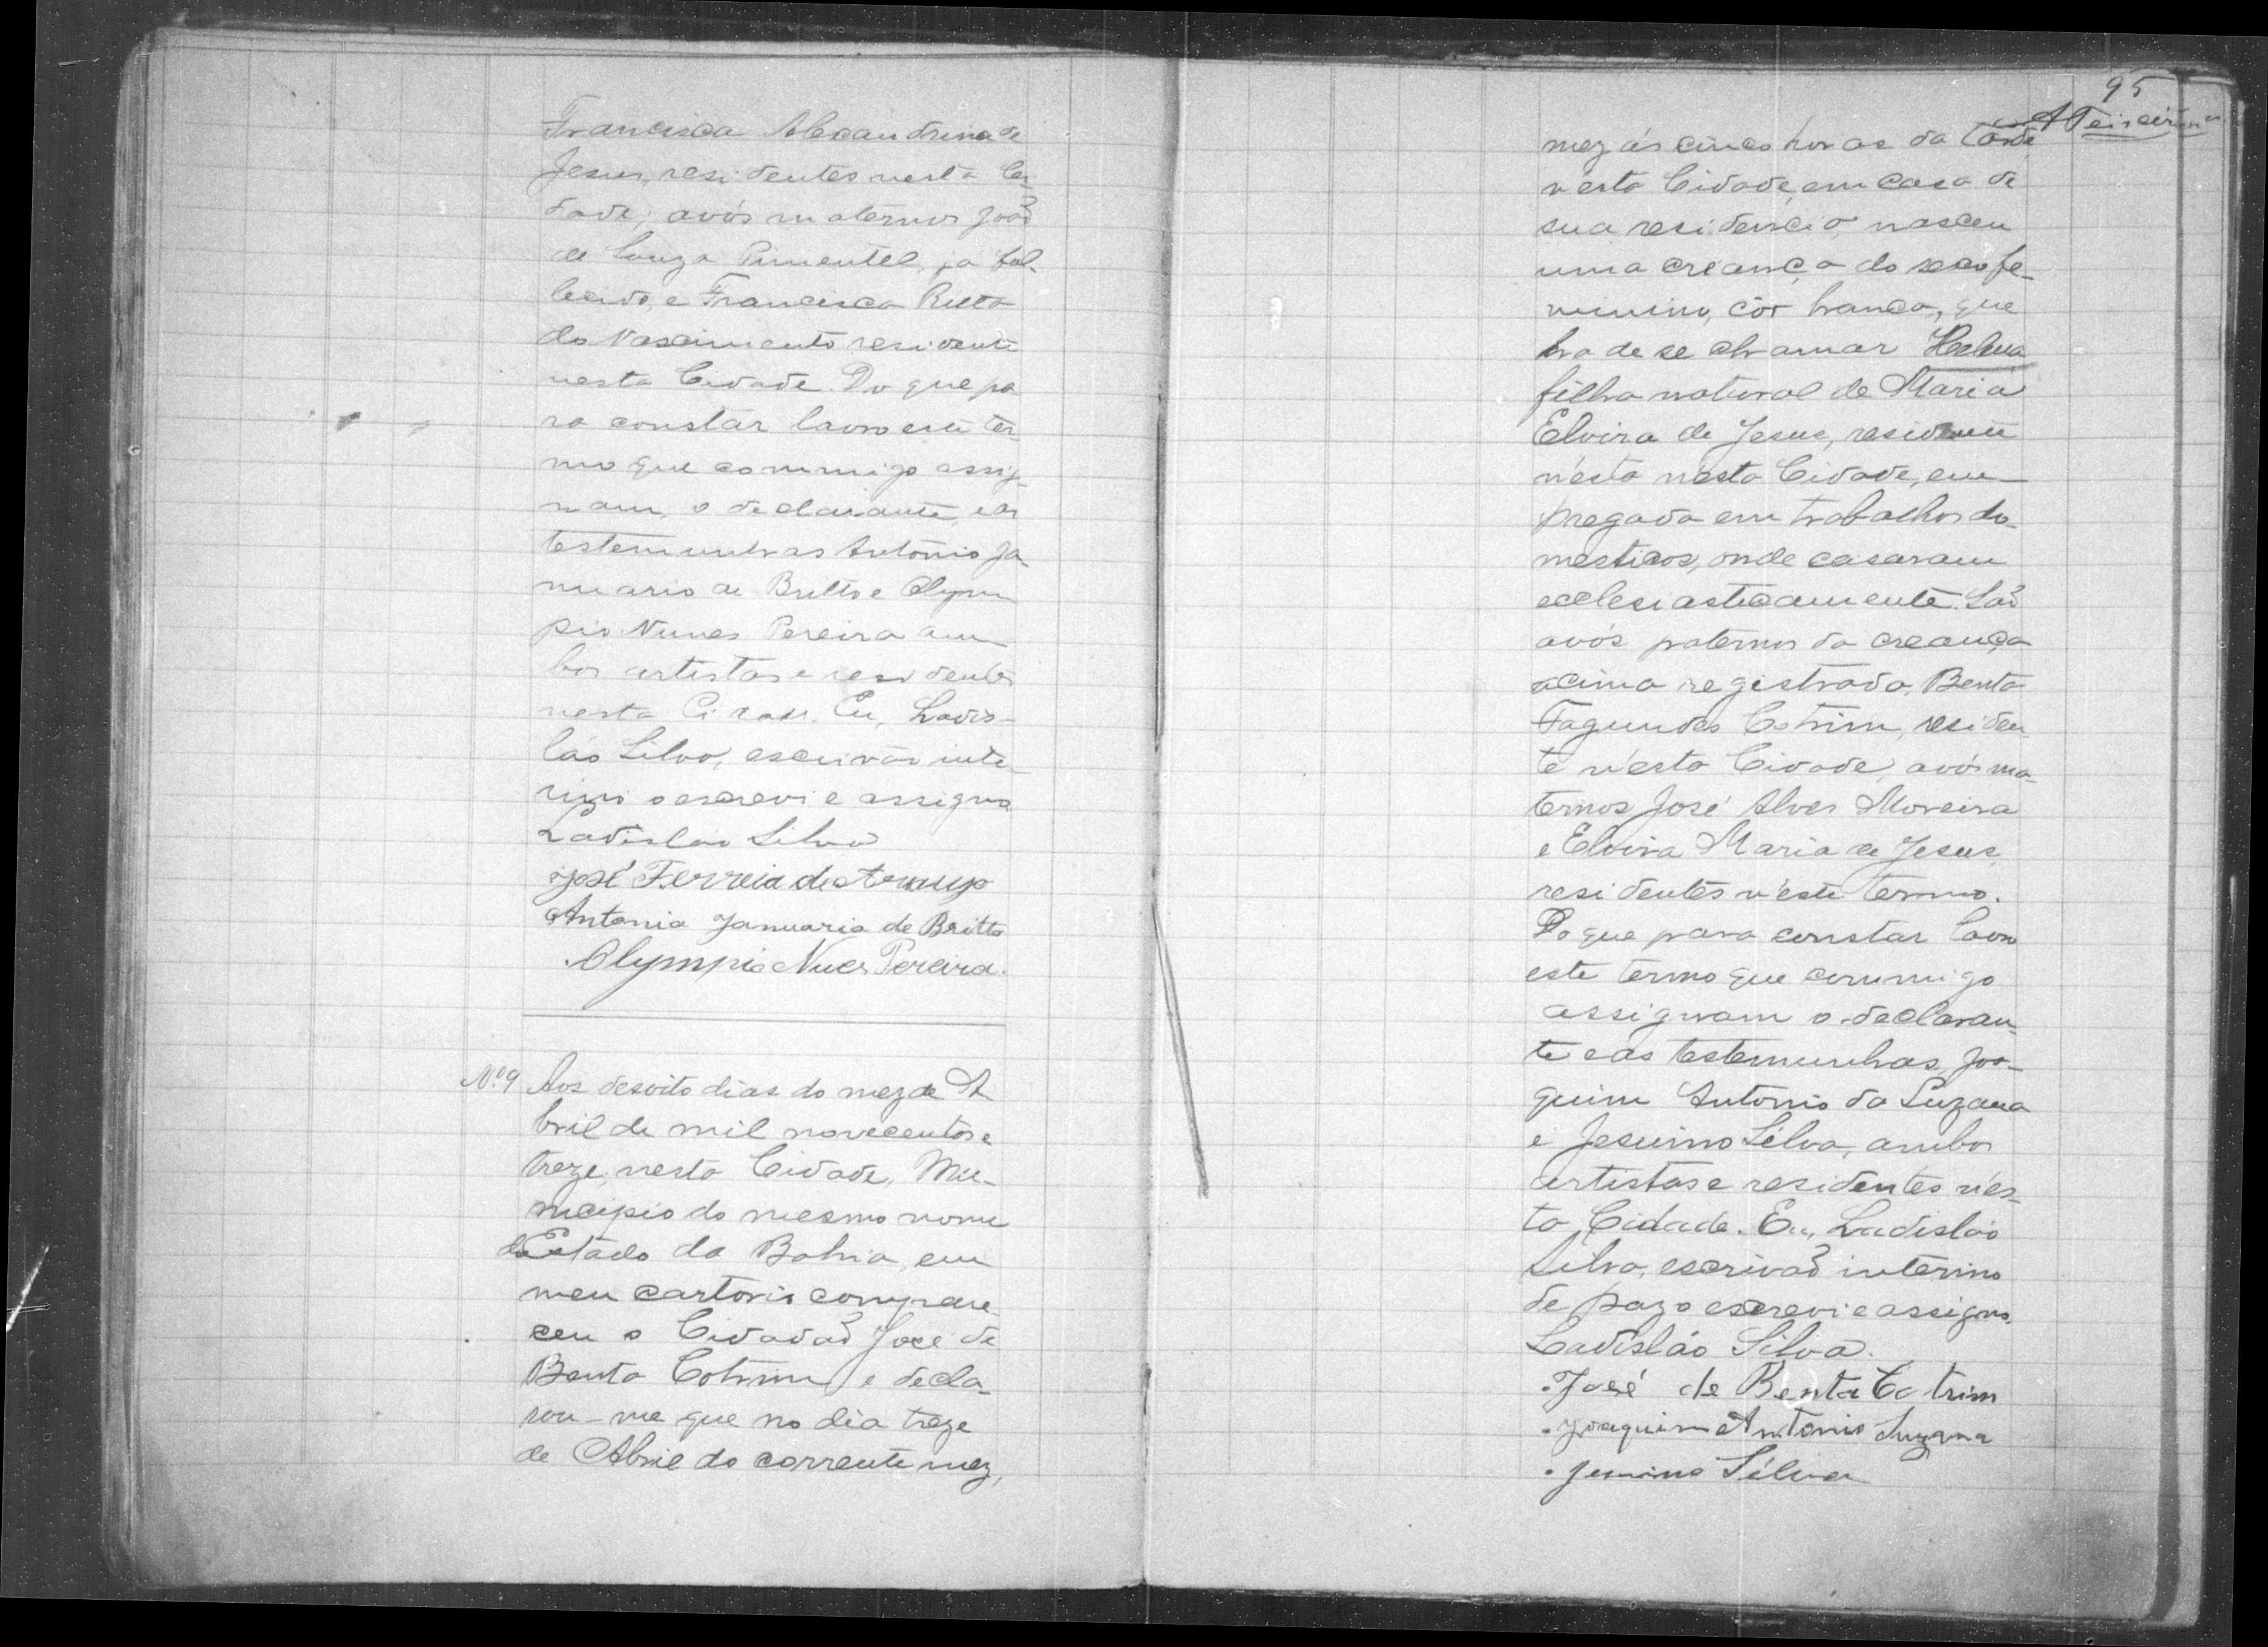 Francisca Alexandrina de
Jesus, residentes nesta Ci-
dade; avós maternos João
de Souza Pimentel, ja fal-
lecido, e Francisca Ritta
do Nascimento residente
nesta Cidade. Do que pa
ra constar lavro este ter-
mo que commigo assig-
nam, o declarante, e as
testemunhas Antonio Ja-
nuario de Britto e Olym
pio Nunes Pereira am
bos artistas e residentes
nesta Cidade. Eu, Ladis-
láo Silva, escrivão inte-
rino o escrevi e assigno
Ladislao Silva
José Ferreia de Araujo
Antonio Januario de Britto
Olympio Nues Pereira.
Nº 9 Aos desoito dias do mez de A
bril de mil novecentos e
treze, nesta Cidade, Mu-
nicipio do mesmo nome
do Estado da Bahia, em
meu cartorio compare-
ceu o Cidadão José de
Bento Cotrim e decla-
rou-me que no dia treze
de Abril do corrente mez,
95
A Teixeira
mez ás cinco horas da tarde
n'esta Cidade, em casa de
sua residencia, nasceu
uma creança do sexo fe-
minino, côr branca, que
ha de se chamar Helena
filha natural de Maria
Elvira de Jesus, residente
n'esta n'esta Cidade, em-
pregada em trabalhos do-
mesticos, onde casaram
ecclesiasticamente. São
avós paternos da creança
acima registrada, Bento
Fagundes Cotrim, residen
te n'esta Cidade, avós ma-
ternos José Alves Moreira
e Elvira Maria de Jesus
residentes n'este termo.
Do que para constar lavro
este termo que commigo
assignam o declaran-
te e as testemunhas, Joa-
quim Antonio da Suzana
e Jesuino Silva, ambos
artistas e residentes n'es-
ta Cidade. Eu, Ladisláo
Silva, escrivão interino
de pazo escrevi e assigno.
Ladisláo Silva.
José de Benta Cotrim
Joaquim Antonio Suzana
Jesuino Silva